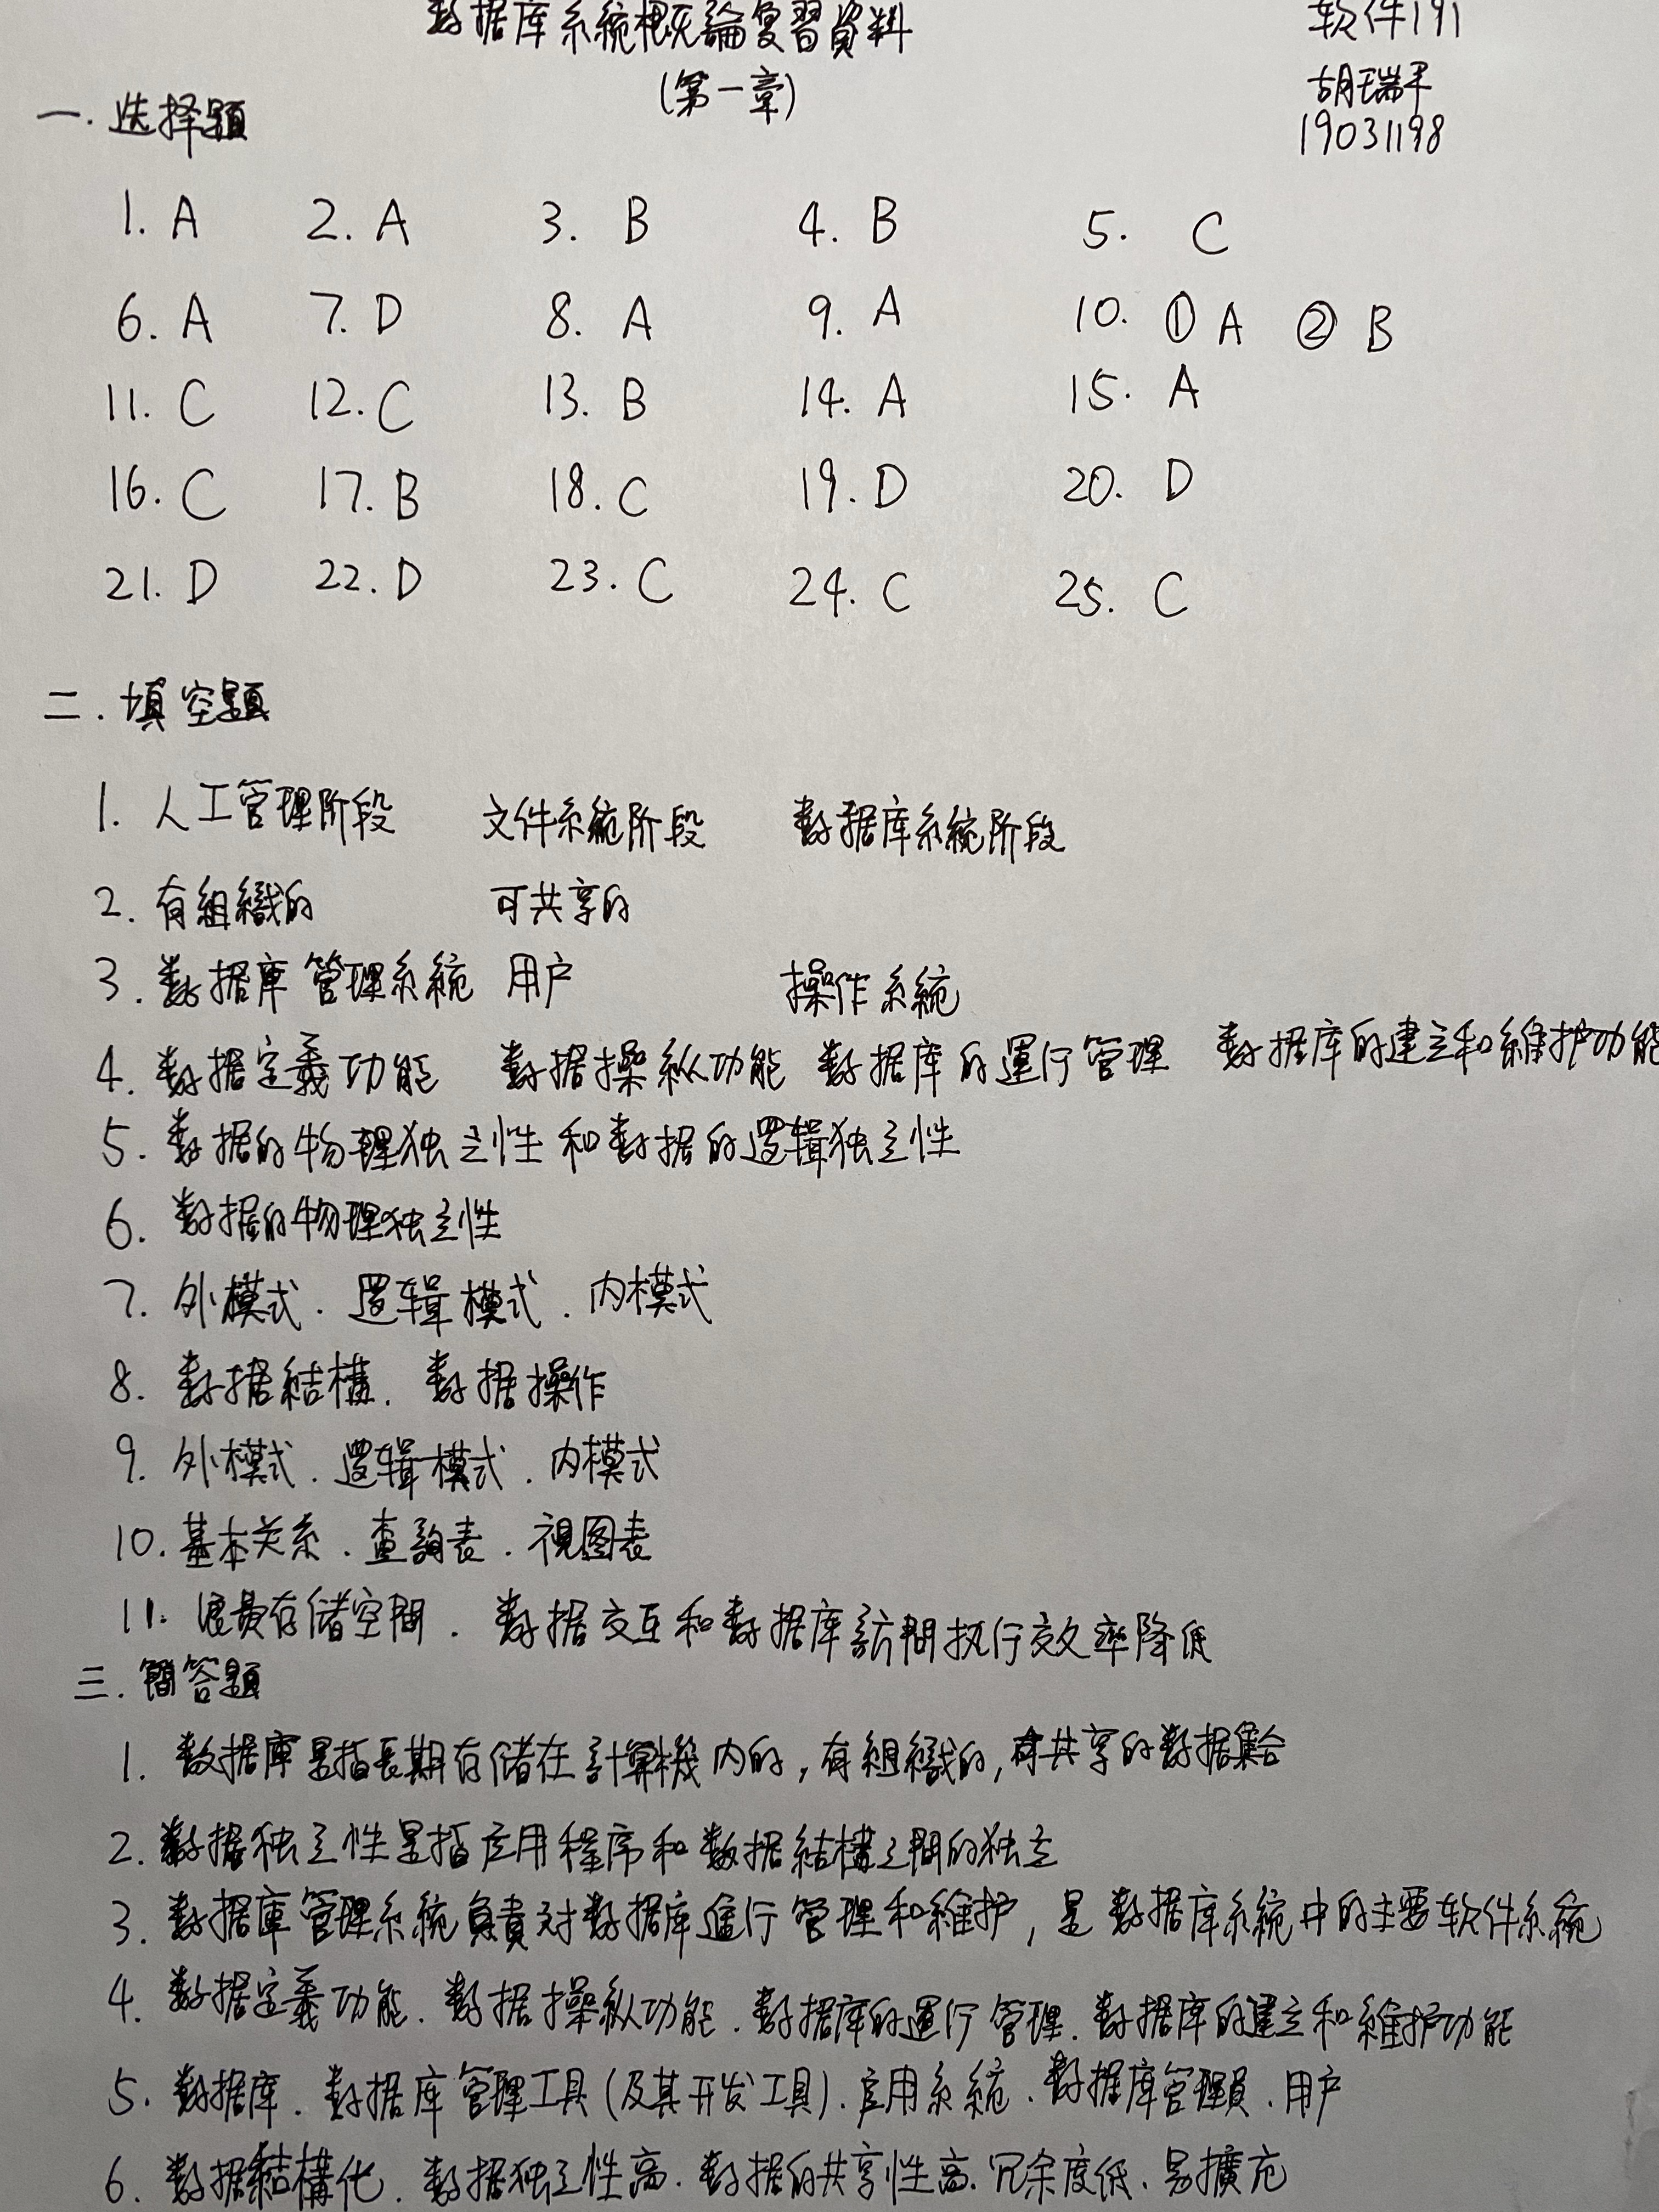 数据库系統概論复習資料 软件191
(第一章) 胡瑞平
19031198
一.选择题
1. A 2. A 3. B 4. B 5. C
6. A 7. D 8. A 9. A 10. ①A ②B
11. C 12. C 13. B 14. A 15. A
16. C 17. B 18. C 19. D 20. D
21. D 22. D 23. C 24. C 25. C
二.填空题
1. 人工管理阶段 文件系統阶段 数据库系統阶段
2. 有組織的 可共享的
3. 数据庫管理系統 用户 操作系統
4. 数据定義功能 数据操縱功能 数据库的運行管理 数据库的建立和維护功能
5. 数据的物理独立性和数据的逻辑独立性
6. 数据的物理独立性
7. 外模式. 逻辑模式. 内模式
8. 数据結構. 数据操作
9. 外模式. 逻辑模式. 内模式
10. 基本关系. 查詢表. 視图表
11. 浪費存储空間. 数据交互和数据库訪問执行效率降低
三.簡答题
1. 数据庫是指長期存储在計算機内的,有組織的,可共享的数据集合
2. 数据独立性是指应用程序和数据結構之間的独立
3. 数据庫管理系統負責对数据库進行管理和維护,是数据库系統中的主要软件系統
4. 数据定義功能. 数据操纵功能. 数据库的運行管理. 数据库的建立和維护功能
5. 数据库. 数据库管理工具(及其开发工具). 应用系統. 数据库管理員. 用户
6. 数据結構化. 数据独立性高. 数据的共享性高. 冗余度低. 易擴充